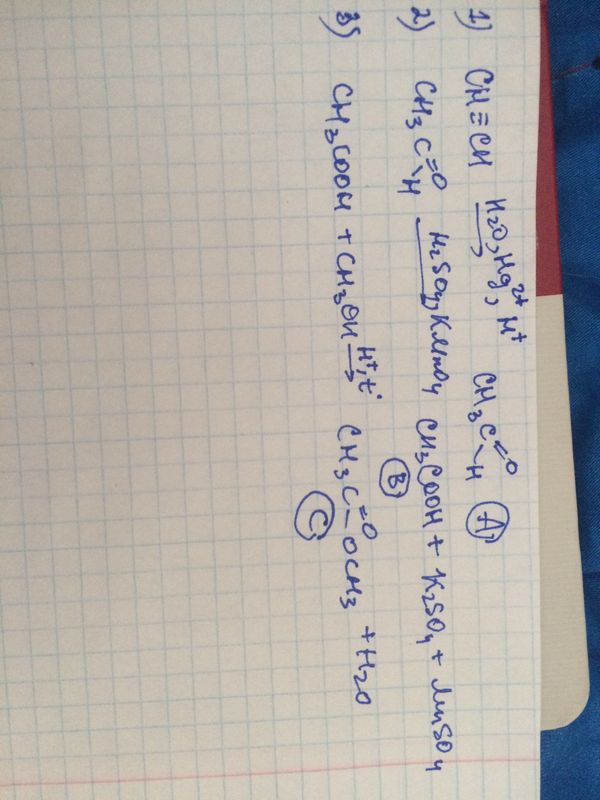 1) CH≡CH H₂O, Hg²⁺, H⁺ → CH₃C(=O)-H (A)
2) CH₃C(=O)-H H₂SO₄, KMnO₄ → CH₃COOH + K₂SO₄ + MnSO₄
(B)
3) CH₃COOH + CH₃OH H⁺, t° → CH₃C(=O)-OCH₃ + H₂O
(C)